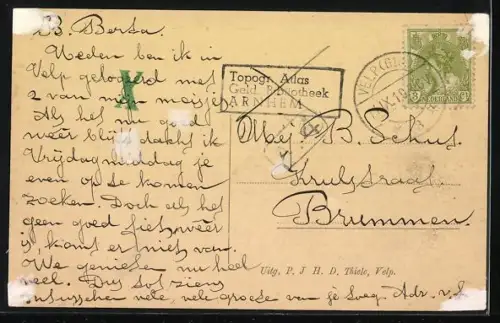 B. Berta.
Heden ben ik in
Velp gelogeerd met
2 van mijn meisjes
Als het nu goed
weer blijft dacht ik
Vrijdagmiddag je
even op te komen
zoeken. Doch als het
geen goed fietsweer
is, komt er niets van.
We genieten nu heel
veel. Dus tot ziens
intusschen vele, vele groeten van je toeg. Adr. v. d.
Topogr. Atlas
Geld. Bibliotheek
ARNHEM
VELP (GLD)
NEDERLAND
Mej. B. Schut
Brummen.
Uitg. P. J. H. D. Thiele, Velp.